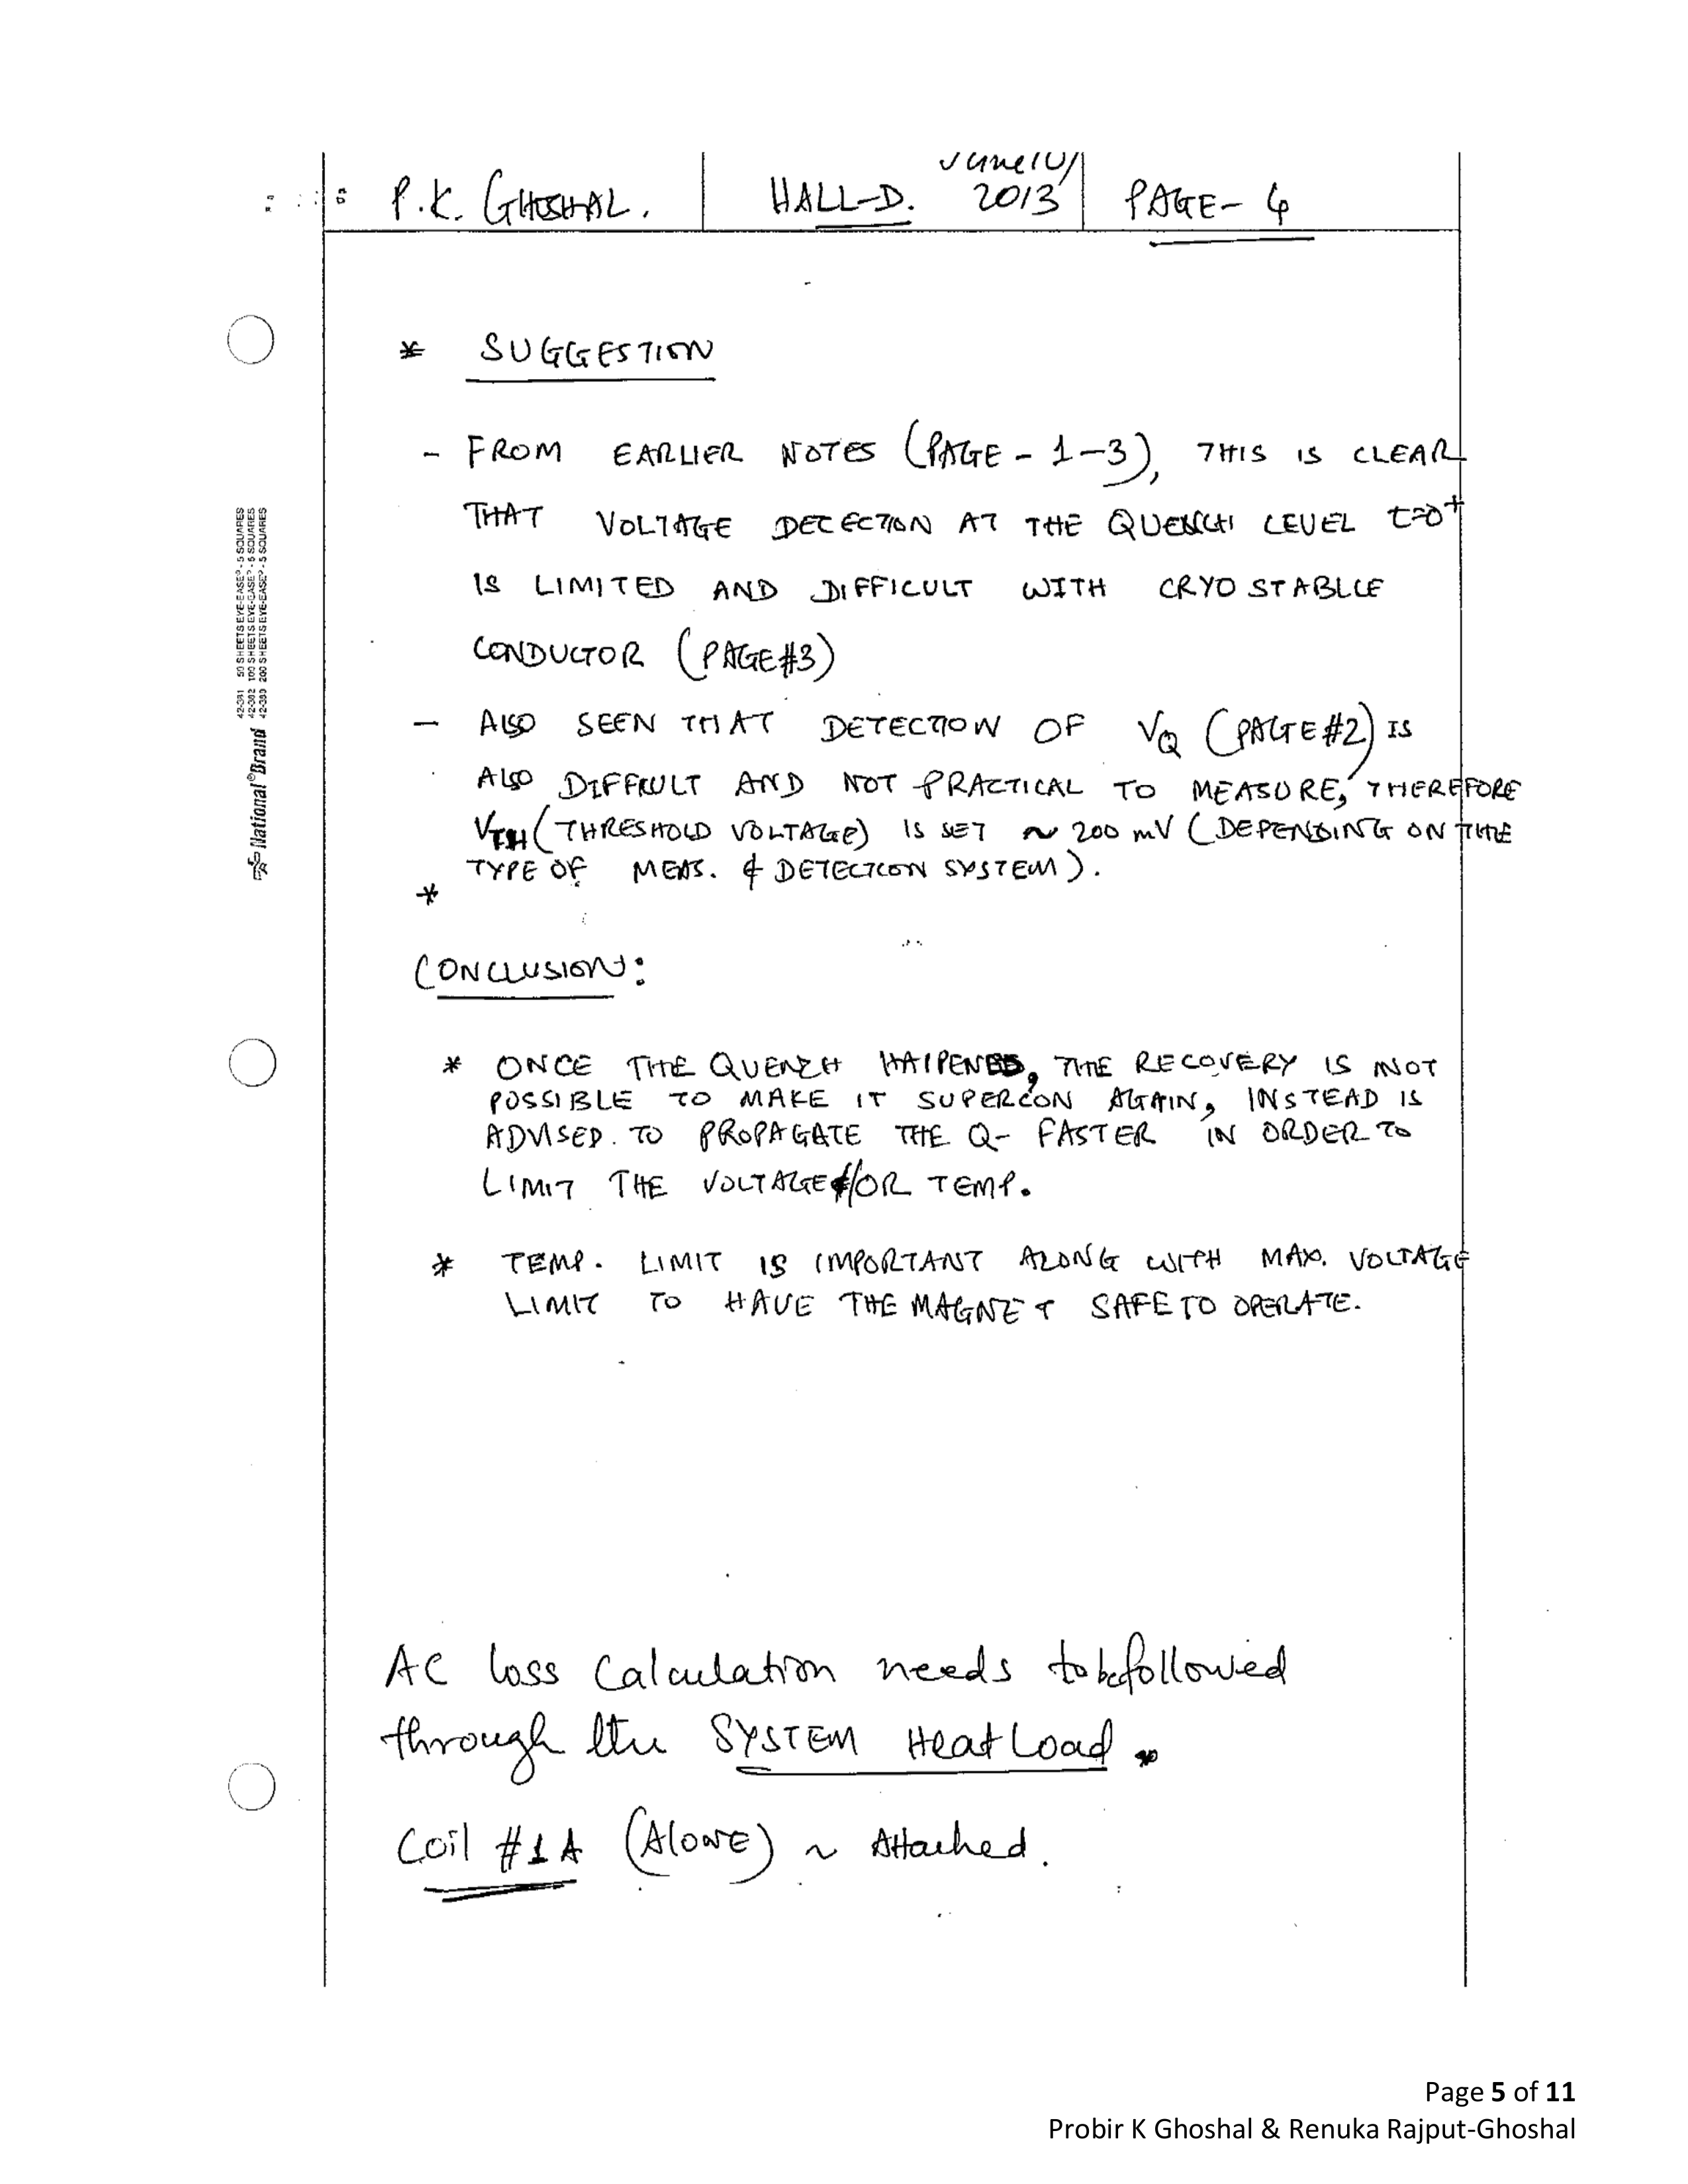 June 10/
P.K. GHOSHAL. HALL-D. 2013 PAGE- 4
* SUGGESTION
- FROM EARLIER NOTES (PAGE - 1-3), THIS IS CLEAR
THAT VOLTAGE DETECTION AT THE QUENCH LEVEL t=0+
IS LIMITED AND DIFFICULT WITH CRYO STABLLE
CONDUCTOR (PAGE#3)
- ALSO SEEN THAT DETECTION OF VQ (PAGE#2) IS
ALSO DIFFICULT AND NOT PRACTICAL TO MEASURE, THEREFORE
VTH (THRESHOLD VOLTAGE) IS SET ~ 200 mV (DEPENDING ON THE
TYPE OF MEAS. & DETECTION SYSTEM).
*
CONCLUSION:
* ONCE THE QUENCH HAPPENED, THE RECOVERY IS NOT
POSSIBLE TO MAKE IT SUPERCON AGAIN, INSTEAD IS
ADVISED. TO PROPAGATE THE Q- FASTER IN ORDER TO
LIMIT THE VOLTAGE &/OR TEMP.
* TEMP. LIMIT IS IMPORTANT ALONG WITH MAX. VOLTAGE
LIMIT TO HAVE THE MAGNET SAFE TO OPERATE.
AC loss Calculation needs to be followed
through the SYSTEM Heat Load.
Coil #1A (Alone) ~ Attached.
42-381 50 SHEETS EYE-EASE® - 5 SQUARES
42-382 100 SHEETS EYE-EASE® - 5 SQUARES
42-389 200 SHEETS EYE-EASE® - 5 SQUARES
National®Brand
Page 5 of 11
Probir K Ghoshal & Renuka Rajput-Ghoshal